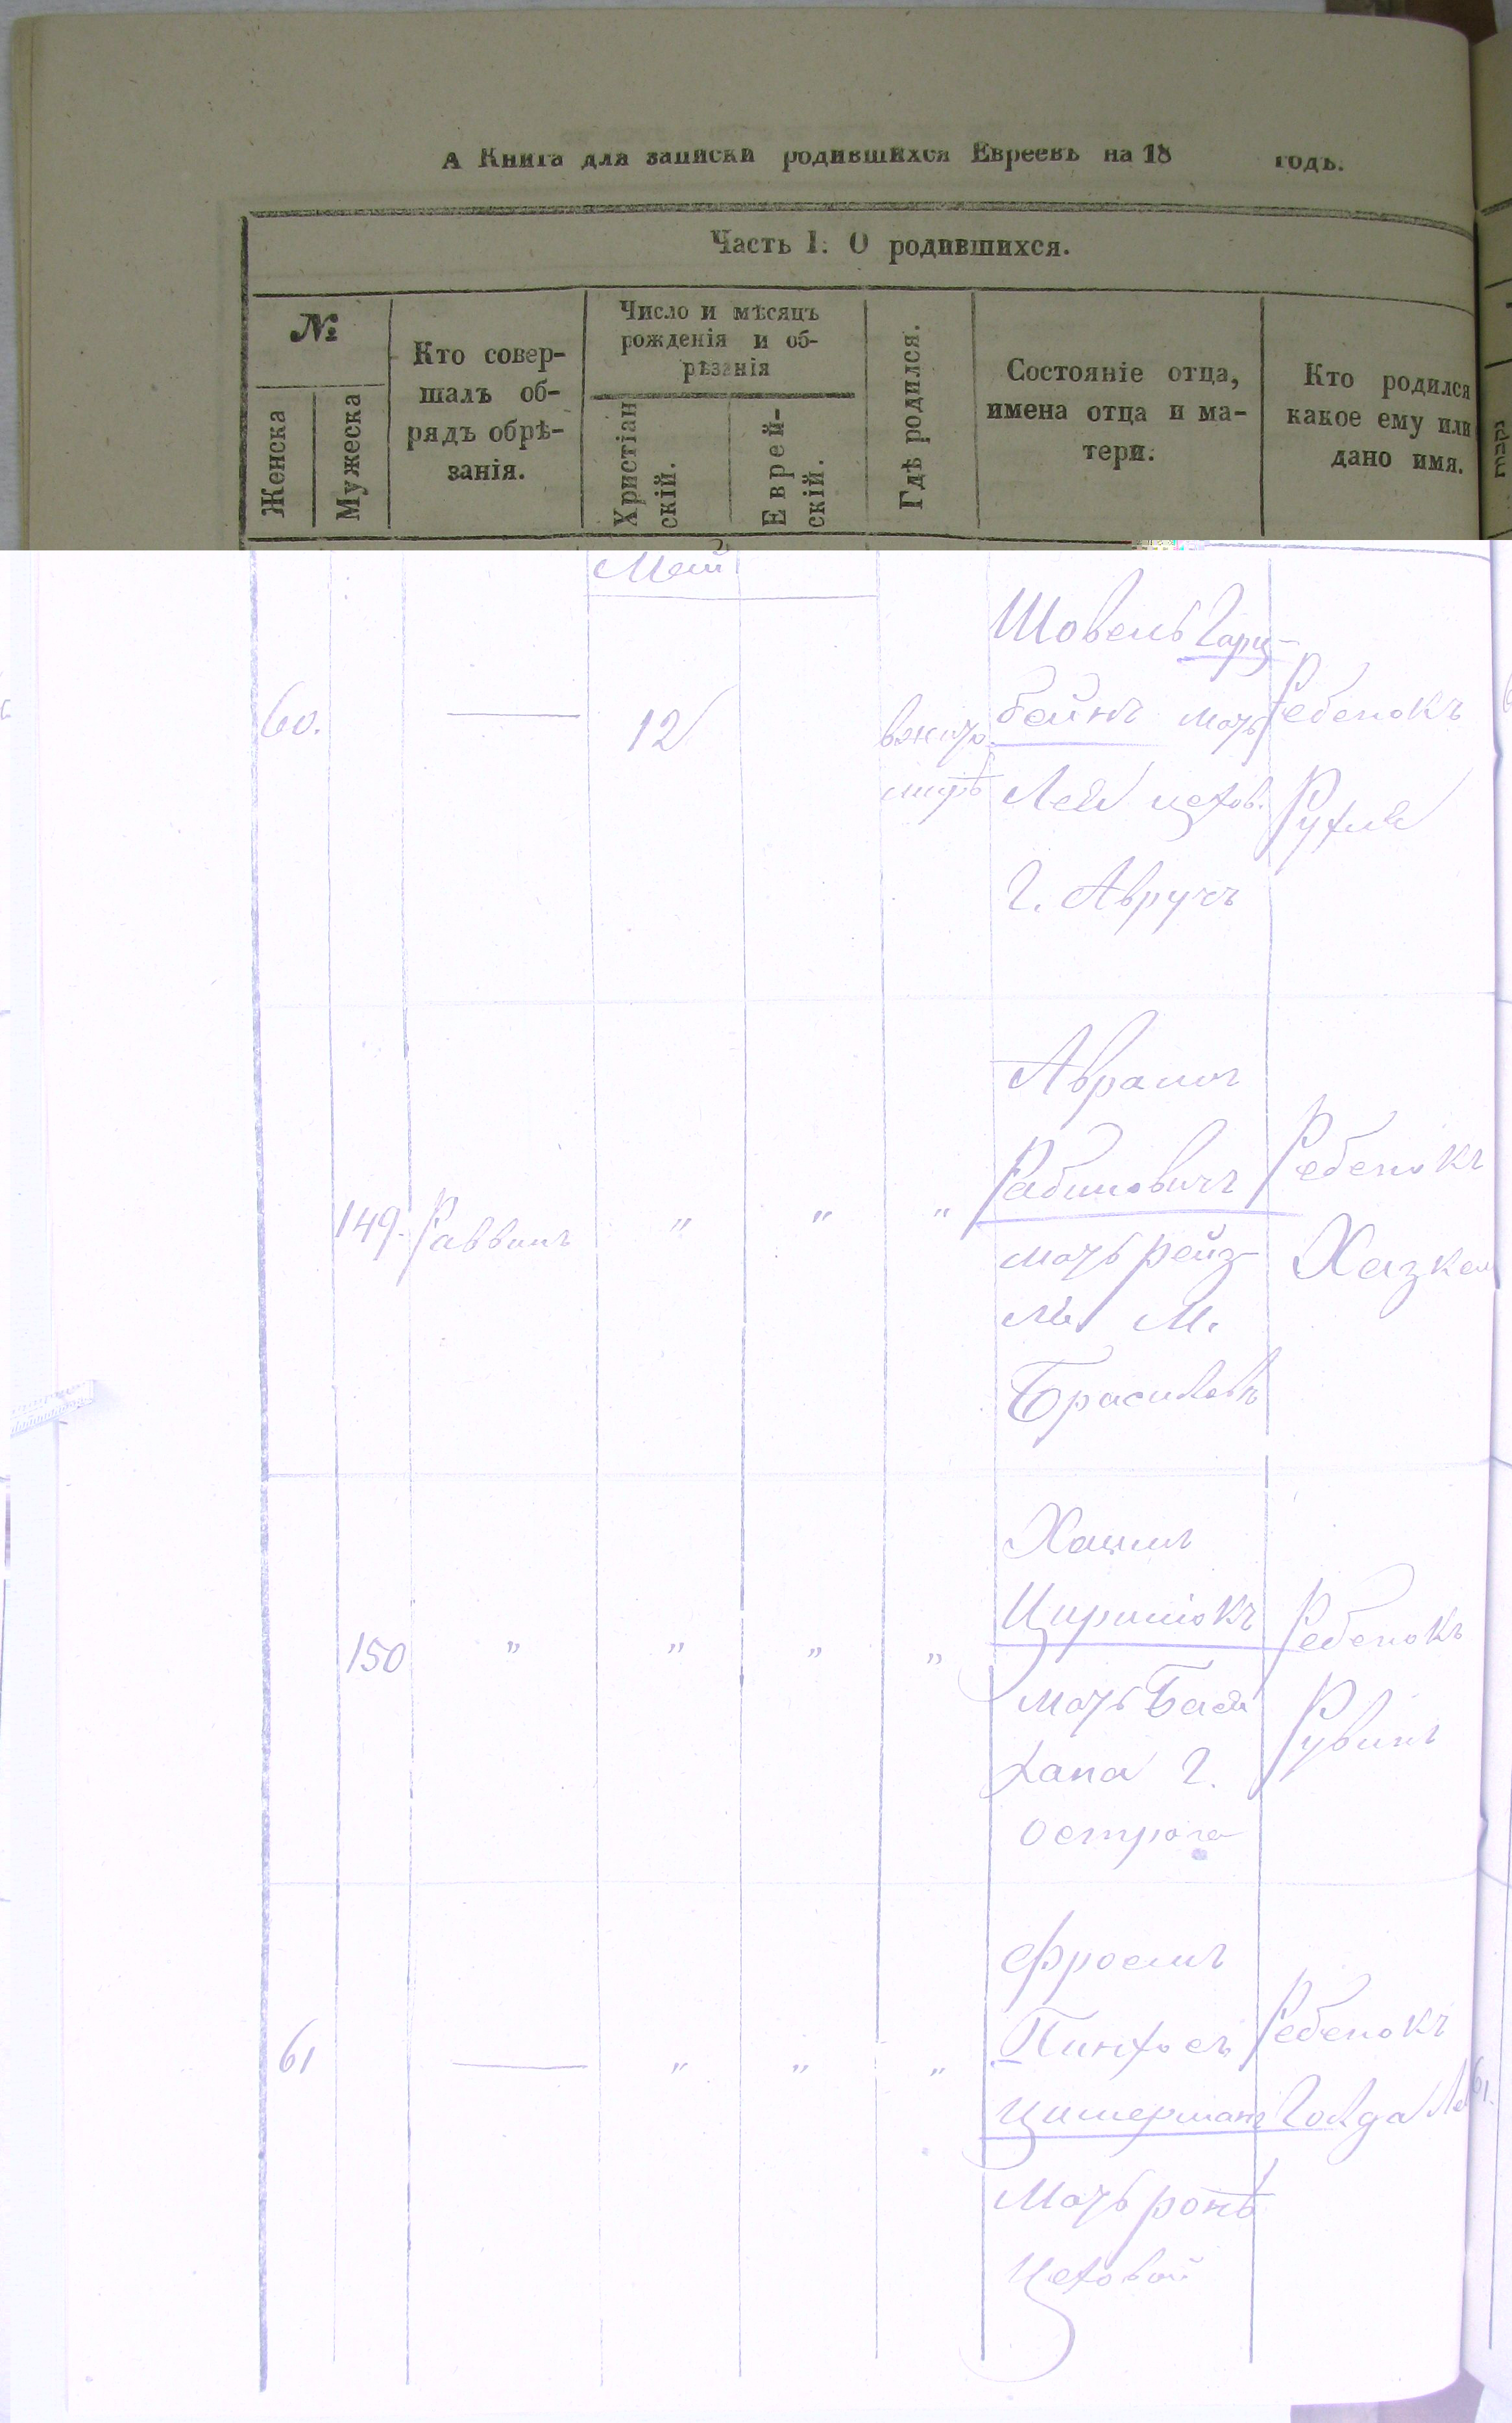 А Книга для записки родившихся Евреевъ на 18 годъ.
Часть I. О родившихся.
№
Женска
Мужеска
Кто совер-
шалъ об-
рядъ обрѣ-
занія.
Число и мѣсяцъ
рожденія и об-
рѣзанія
Христіан
скій.
Еврей-
скій.
Гдѣ родился.
Состояніе отца,
имена отца и ма-
тери.
Кто родился
какое ему или
дано имя.
Май
60.
12
Шовель Гарц-
бейнъ мать
Лея цехов.
г. Авручъ
Ребенокъ
Рухля
149. Раввинъ " " "
Аврамъ
Рабиновичъ
мать рейз-
ля м.
Ребенокъ
Хазкел
150 " " " "
Хаимъ
мать Бася
хана г.
острога
Ребенокъ
Рувинъ
61 " " "
Фроемъ
Пинхосъ
Цимерманъ
Мать
Цеховой
Ребенокъ
Голда
61.